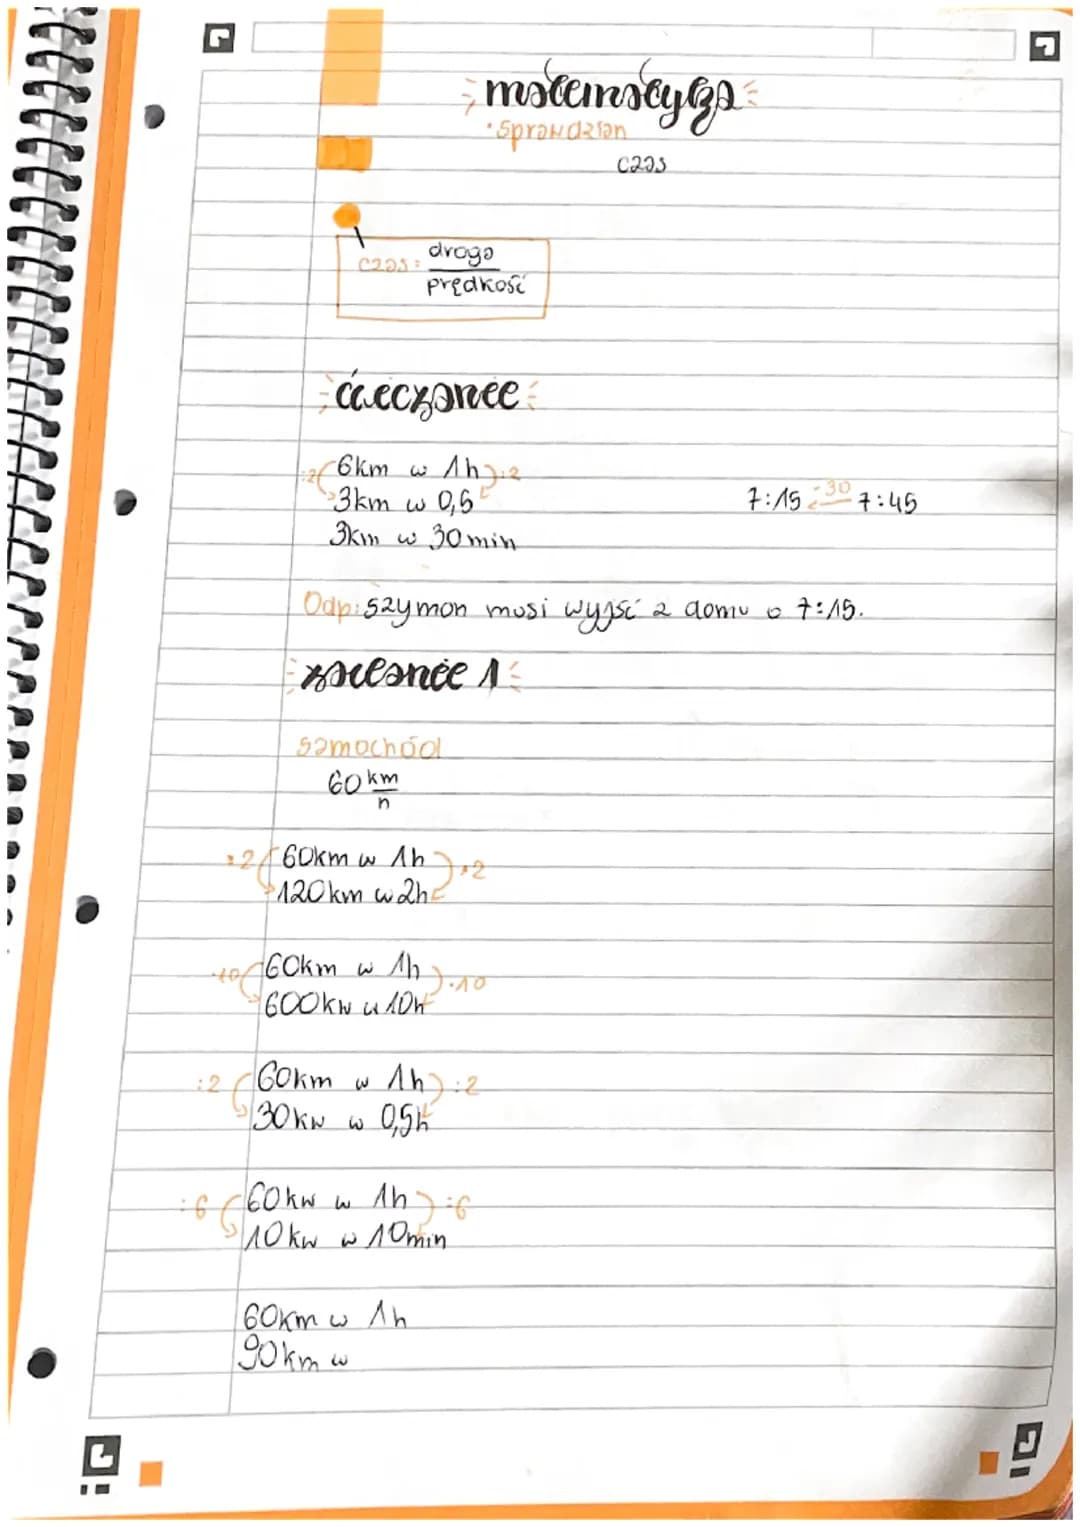 matematyka
• sprawdzian
czas
czas = droga
prędkość
ćwiczenie
:2 6km w 1h :2
3km w 0,5
3km w 30min
7:15 -30 7:45
Odp: Szymon musi wyjść z domu o 7:15.
zadanie 1
samochód
60 km
h
·2 60km w 1h ·2
120km w 2h
·10 60km w 1h ·10
600km w 10h
:2 60km w 1h :2
30km w 0,5h
:6 60km w 1h :6
10km w 10min
60km w 1h
90km w